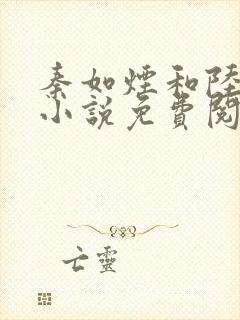 秦如煙和陸
小説免費閱
亡靈